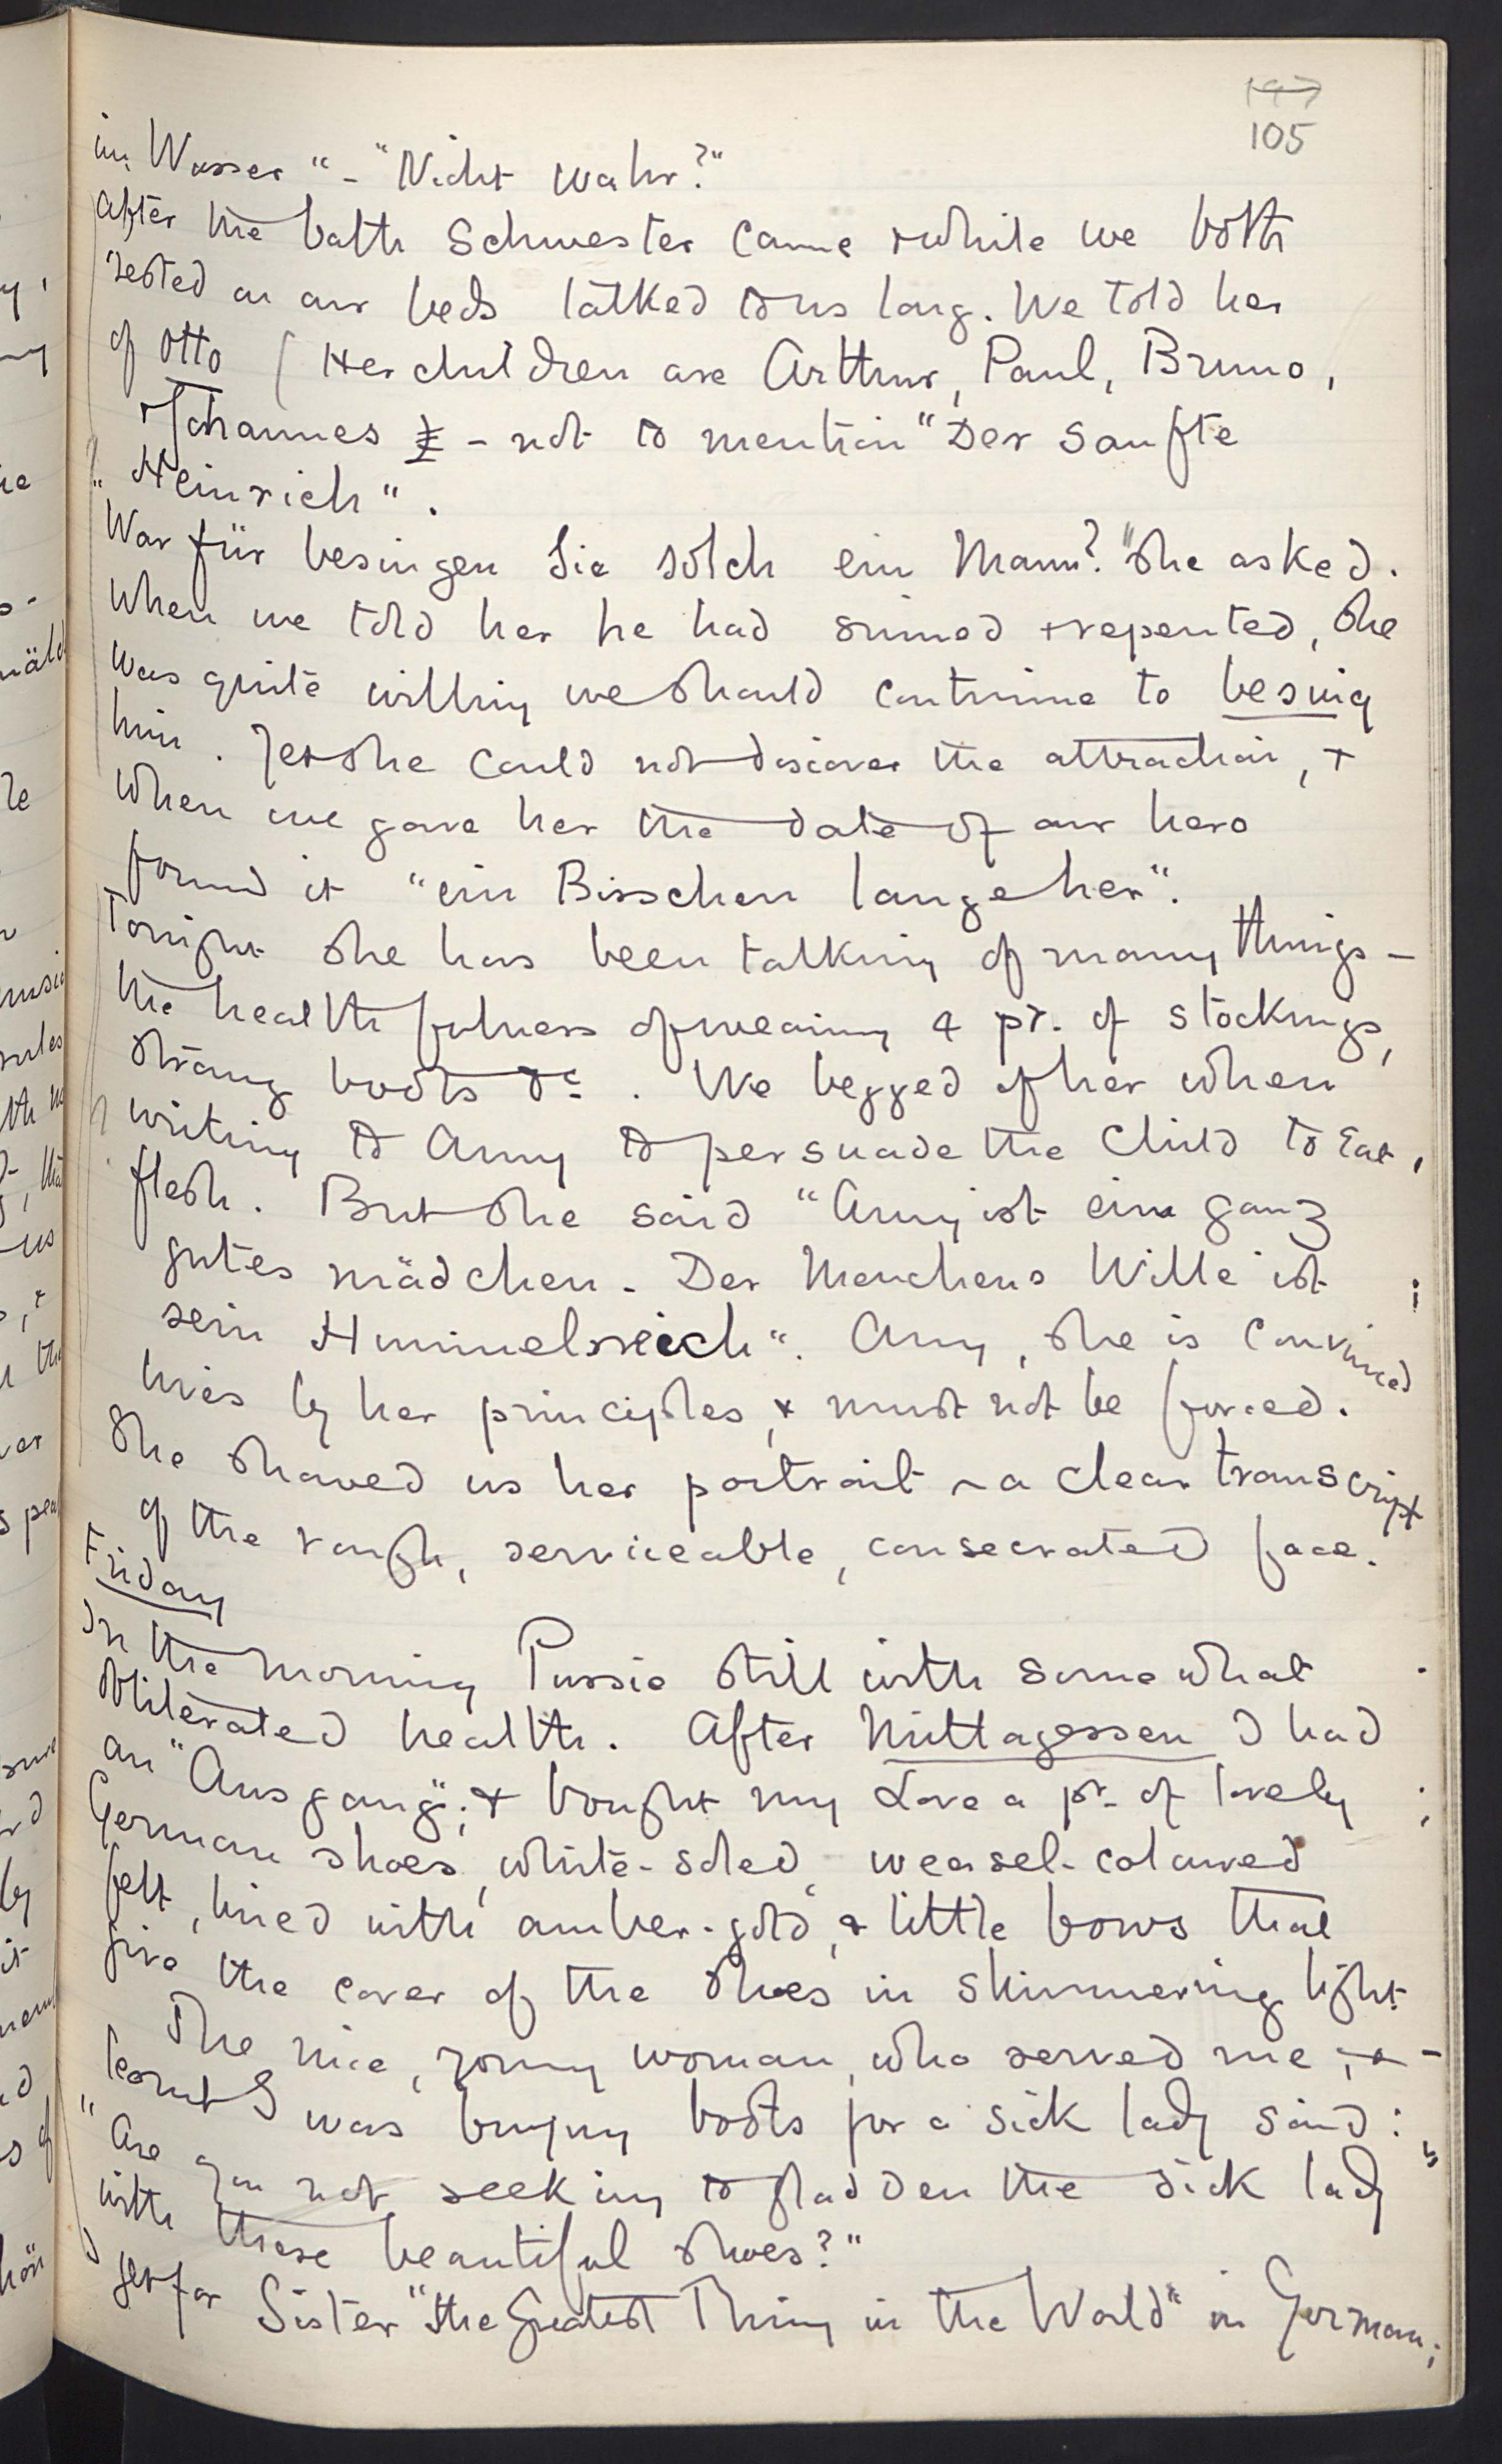 197
105
im Wasser" - "Nicht wahr?"
After the bath Schwester came & while we both
rested on our beds talked to us long. We told her
of Otto ( Her children are Arthur, Paul, Bruno,
& Johannes - not to mention "Der Sanfte
Heinrich".
"War für besingen Sie solch ein Mann?" she asked.
When we told her he had sinned & repented, she
was quite willing we should continue to besing
him. Yet she could not discover the attraction, &
when we gave her the date of our hero
found it "ein Bisschen lange her".
Tonight she has been talking of many things -
the healthfulness of wearing 4 pr. of stockings,
strong boots &c. We begged of her when
writing to Amy to persuade the child to eat
flesh. But she said "Amy ist eine ganz
gutes mädchen. Der Menchens Wille ist
sein Himmelsreich". Amy, she is convinced
lives by her principles, & must not be forced.
She showed us her portrait - a clear transcript
of the rough, serviceable, consecrated face.
Friday
In the morning Pussie still with somewhat
obliterated health. After Mittagessen I had
an "Ausgang"; & bought my Love a pr. of lovely
German shoes, white-soled, weasel-coloured
felt, lined with amber-gold, & little bows that
give the cover of the shoes in skimmering light.
The nice, young woman, who served me, &
learnt I was buying boots for a sick lady said:
"Are you not seeking to gladden the sick lady
with these beautiful shoes?"
I get for Sister "the Greatest Thing in the World" in German;